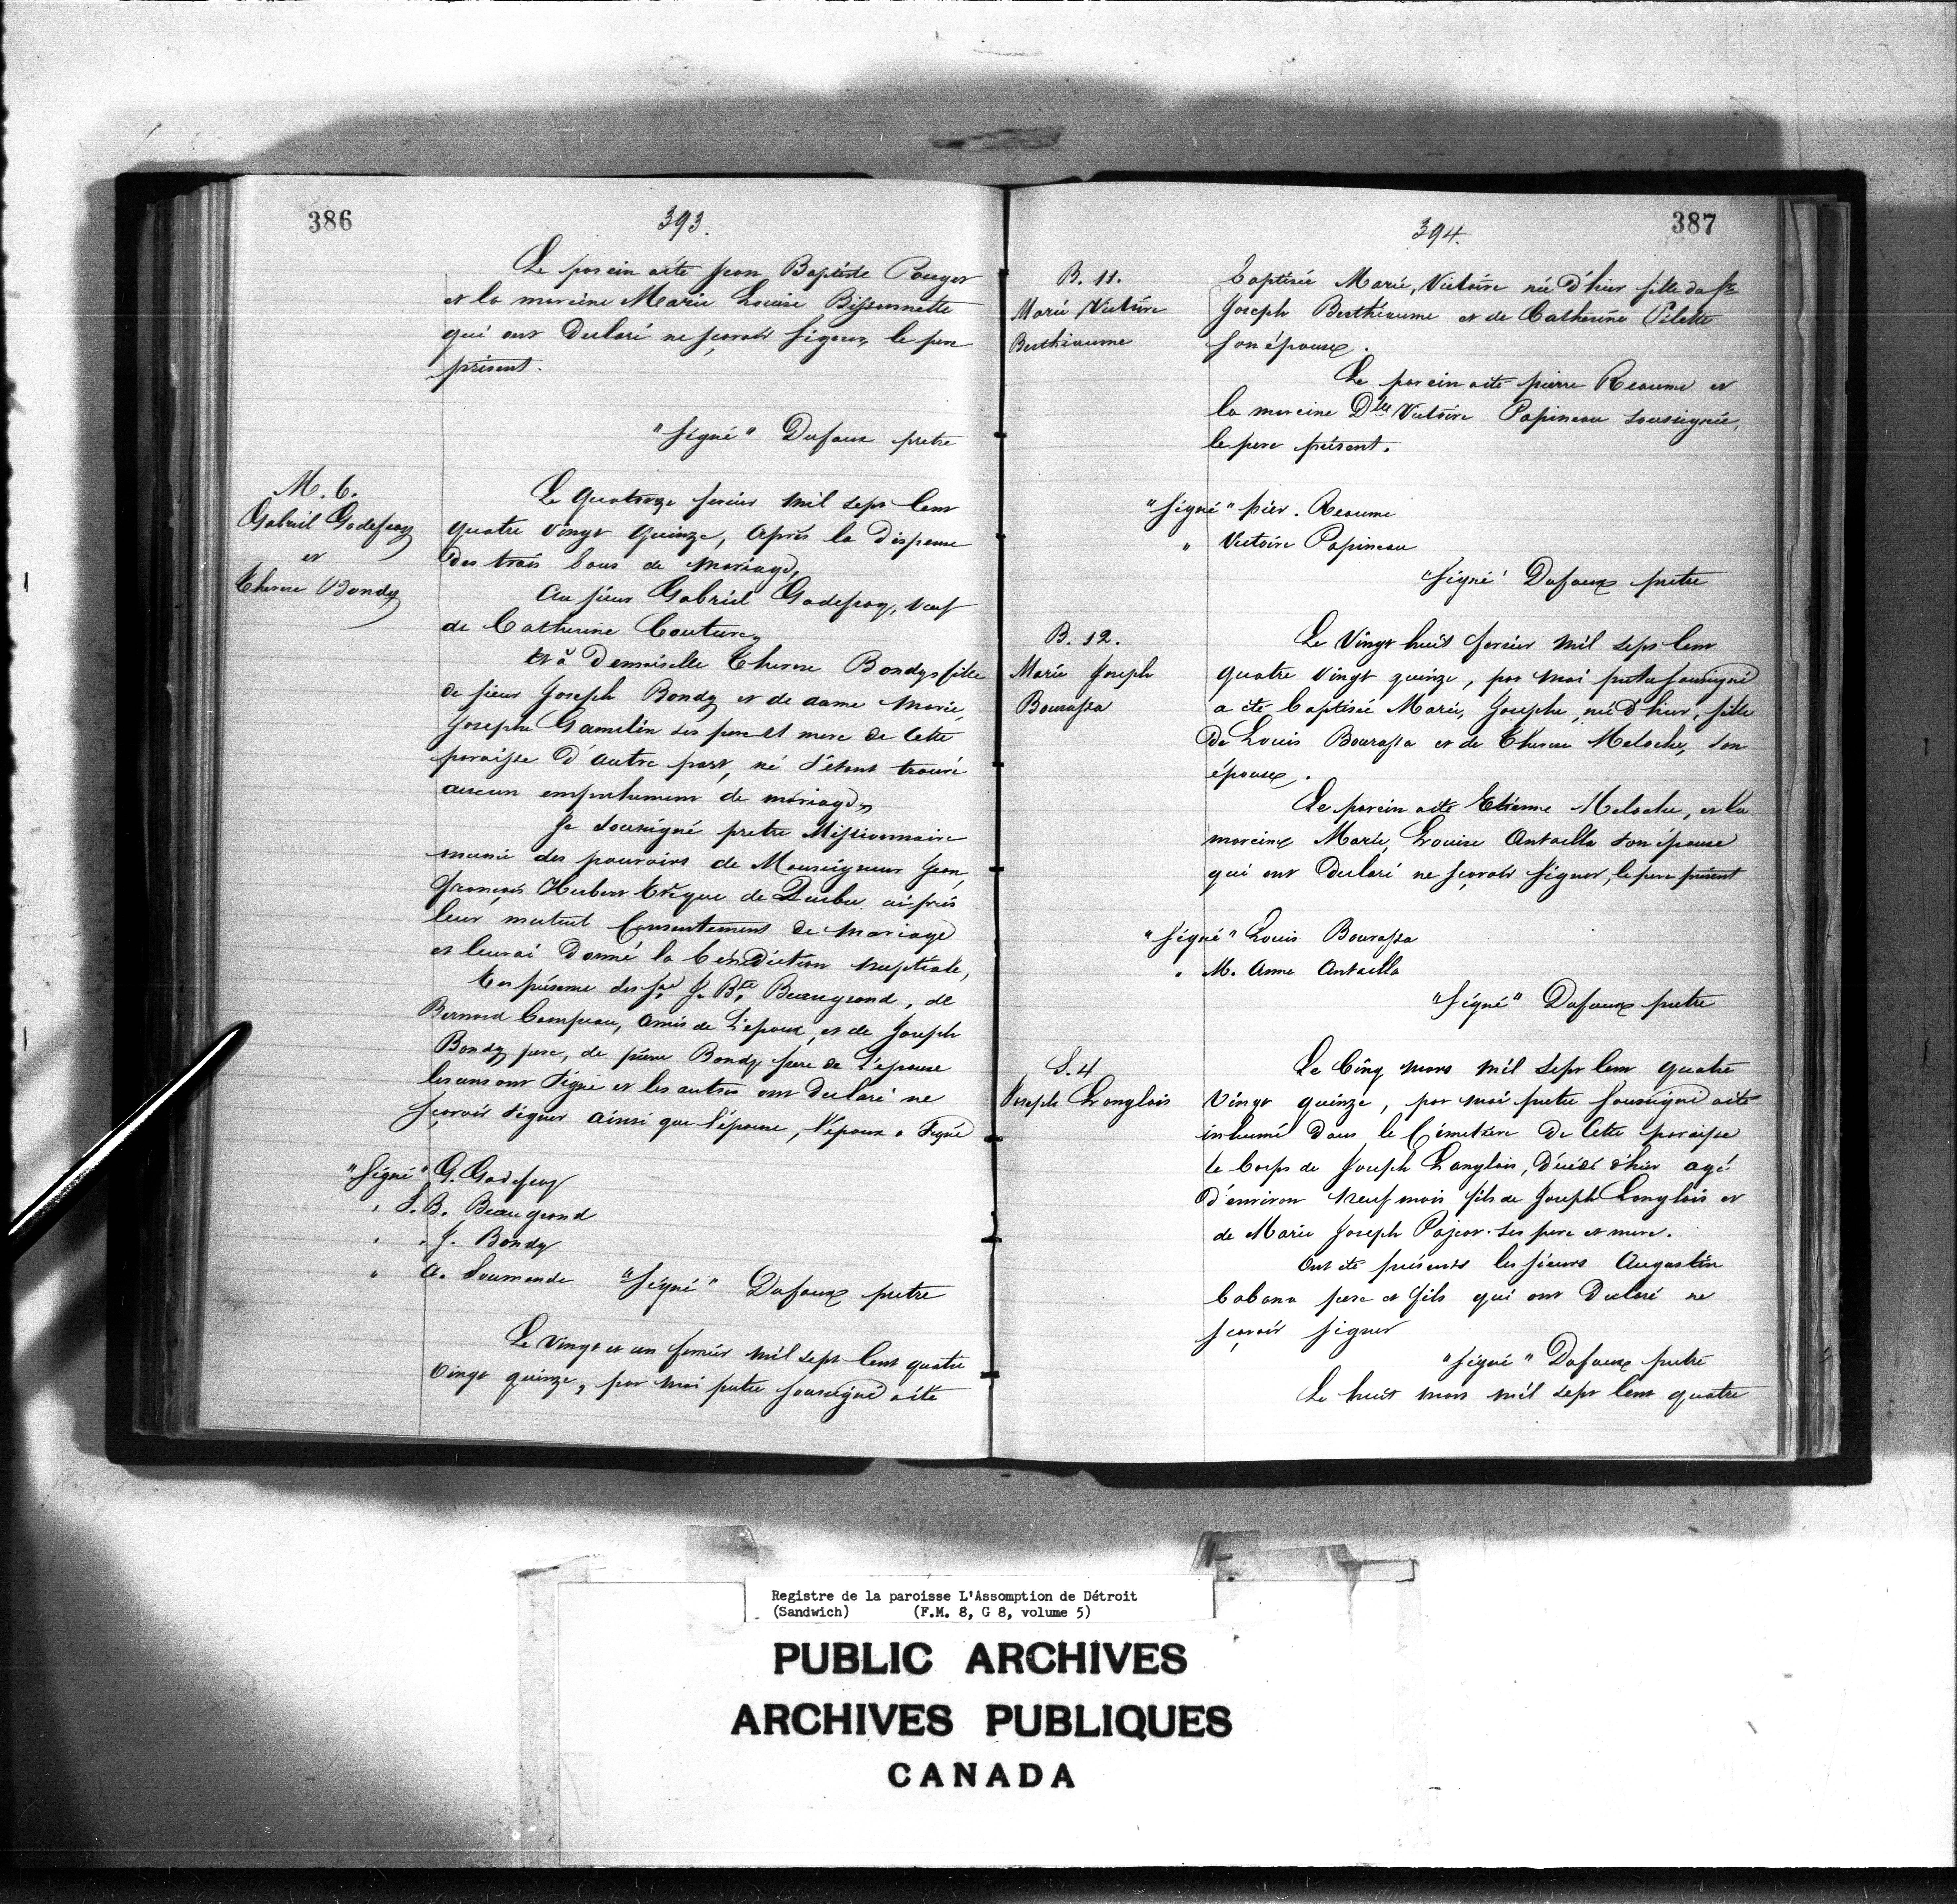 386
393.
Le parein a été Jean Baptiste Pouget
et la mareine Marie Louise Bissonnette
qui ont Declaré ne sçavoir signer, le pere
présent.
"Signé" Dufaux pretre
M. 6.
Gabriel Godefroy
et
Therese Bondy
Le quatorze fevrier mil sept Cent
quatre vingt quinze, Après la dispense
des trois bans de mariage,
Au sieur Gabriel Godefroy, veuf
de Catherine Couture,
Et à Demoiselle Therese Bondy, fille
de sieur Joseph Bondy et de dame Marie,
Josephe Gamelin ses pere et mere de Cette
paroisse D'autre part, né s'étant trouvé
aucun empechement de mariage,
Je sousigné pretre Missionnaire
munie des pouvoirs de Monseigneur Jean,
François Hubert Evêque de Quebec ai pris
leur mutuel Consentement de Mariage
et leur ai Donné la bénédiction nuptiale,
En présence des Srs J. Bte Beaugrand, de
Bernard Campeau, amis de L'époux, et de Joseph
Bondy pere, de pierre Bondy frere de L'épouse
les uns ont Signé et les autres ont declaré ne
sçavoir signer ainsi que l'épouse, l'époux a Signé
"Signé" G. Godefroy
" J. B. Beaugrand
" J. Bondy
" A. Soumande "Signé" Dufaux pretre
Le vingt et un fevrier mil sept Cent quatre
vingt quinze, par moi pretre sousigné a été
394.
387
B. 11.
Marie Victoire
Berthiaume
baptisée Marie, Victoire née d'hier fille du Sr
Joseph Berthiaume et de Catherine Pilette
son épouse.
Le parein a été pierre Reaume et
la mareine Dlle Victoire Papineau sousignée,
le pere présent.
"Signé" pier. Reaume
" Victoire Papineau
"Signé" Dufaux pretre
B. 12.
Marie Joseph
Bourassa
Le Vingt huit fevrier mil sept Cent
quatre vingt quinze, par moi pretre sousigné
a été baptisée Marie, Josephe née d'hier, fille
De Louis Bourassa et de Therese Meloche, son
épouse.
Le parein a été Etienne Meloche, et la
mareine Marie, Louise Antailla son épouse
qui ont Declaré ne sçavoir signer, le pere présent
"Signé" Louis Bourassa
" M. Anne Antailla
"Signé" Dufaux pretre
S. 4
Joseph Langlois
Le Cinq mars mil sept Cent quatre
Vingt quinze, par moi pretre sousigné a été
inhumé dans le Cimetière de Cette paroisse
le Corps de Joseph Langlois, décédé d'hier agé
d'environ neuf mois fils de Joseph Langlois et
de Marie Joseph Pajeot ses pere et mere.
Ont été présents les sieurs Augustin
Cabana pere et fils qui ont Declaré ne
sçavoir signer
"Signé" Dufaux pretre
Le huit mars mil sept Cent quatre
Registre de la paroisse L'Assomption de Détroit
(Sandwich) (F.M. 8, G 8, volume 5)
PUBLIC ARCHIVES
ARCHIVES PUBLIQUES
CANADA